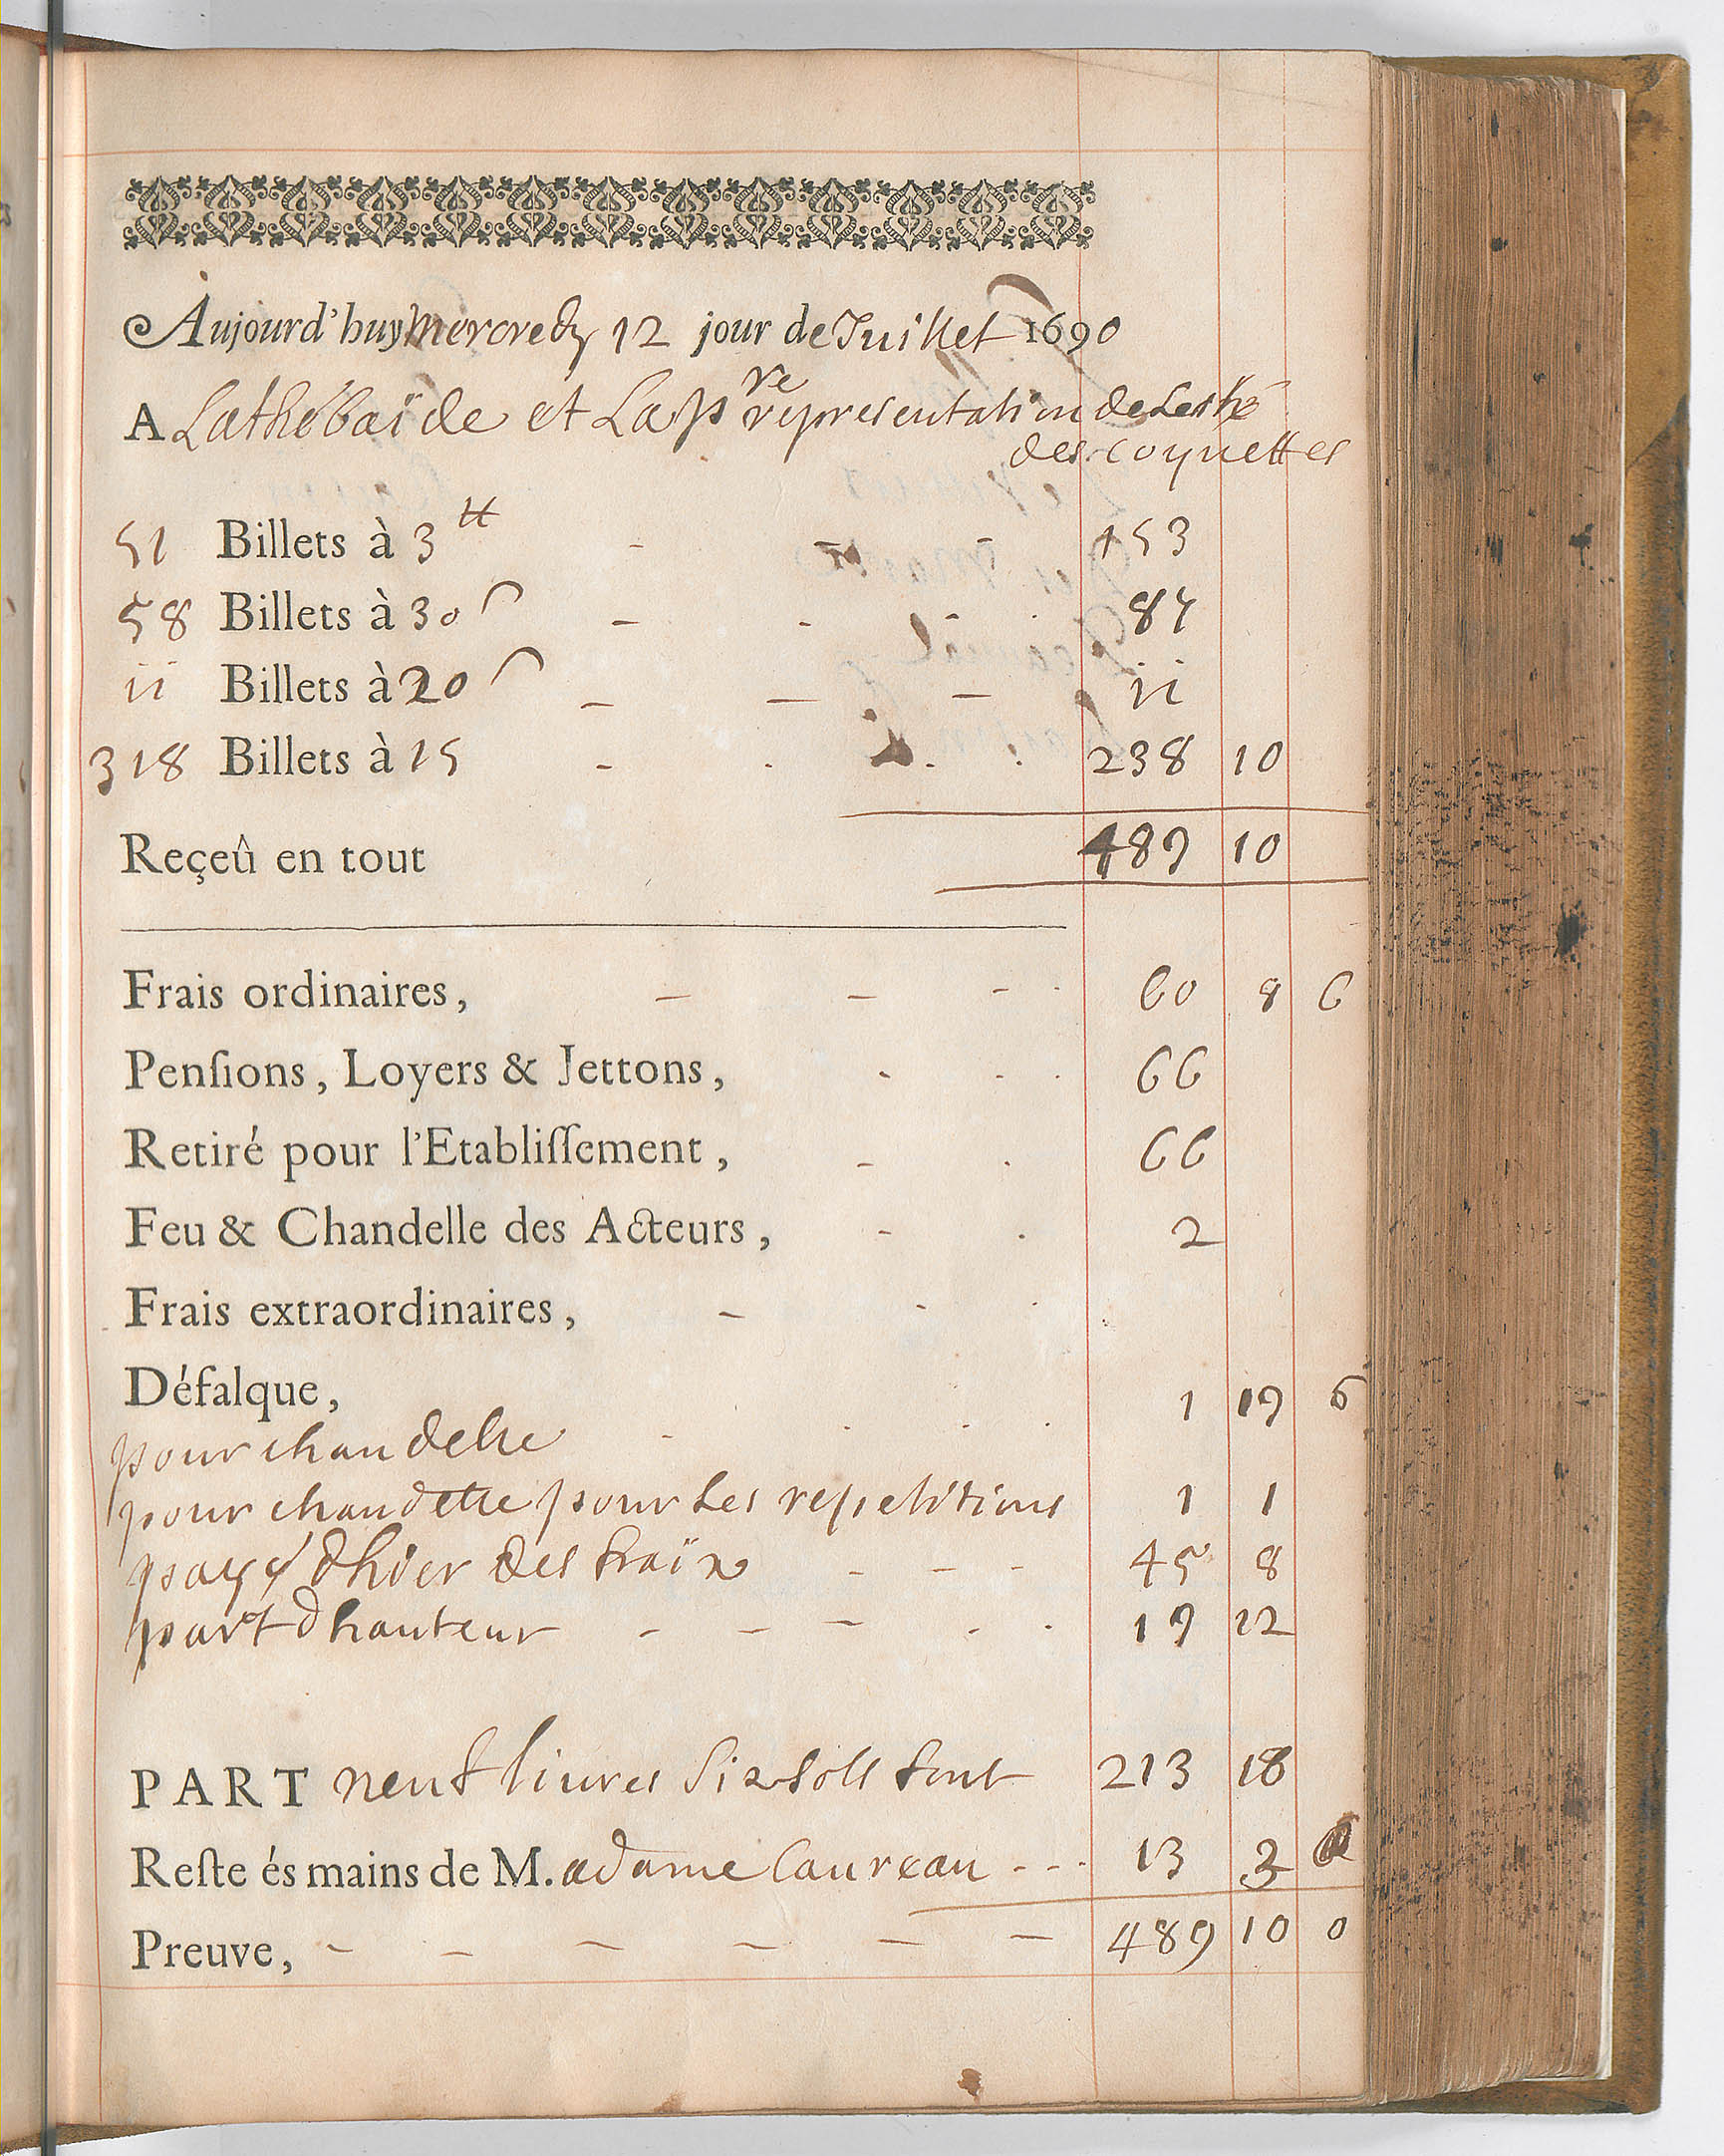 Aujourd'huy Mercredy 12 jour de Juillet 1690
A La thébaïde et La pre representation de Lesté
des coquettes
51 Billets à 3 tt 153
58 Billets à 30 s 87
ii Billets à 20 s ii
318 Billets à 15 238 10
Reçeû en tout 489 10
Frais ordinaires, 60 8 6
Penſions, Loyers & Jettons, 66
Retiré pour l'Etabliſſement, 66
Feu & Chandelle des Acteurs, 2
Frais extraordinaires,
Défalque, 1 19 6
pour chandelle
pour chandelle pour Les repetitions 1 1
payé dhier des fraix 45 8
part dhauteur 19 12
PART neuf liures six sols font 213 18
Reſte és mains de M. adame Caureau 13 3
Preuve, 489 10 0